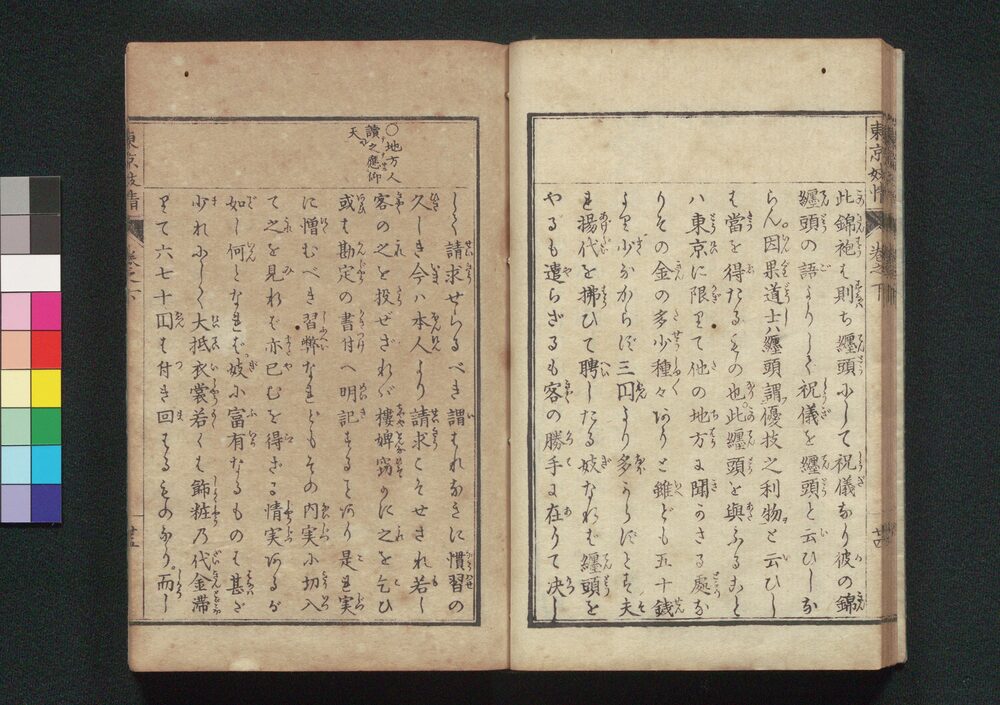 東京妓情 巻之下 廿四
此錦袍も則ち纏頭ふして祝儀なり彼の錦
纏頭の語よりして祝儀を纏頭と云ひしな
らん。因果道士ハ纏頭謂優技之利物と云ひし
も當を得たるもの也。此纏頭を與ふること
ハ東京に限りて他の地方に聞かさる處な
りその金の多少種々ありと雖ども五十錢
より少かからず三円より多からずとす夫
れ揚代を拂ひて聘したる妓なれば纏頭を
やるも遣らざるも客の勝手に在りて决し
〇地方人
讀之應仰
天
しく請求せらるべき謂はれなきに慣習の
久しき今ハ本人より請求こそせされ若し
客の之を投ぜざれバ樓婢窃かに之を乞ひ
或も勘定の書付へ明記するさへあり是れ実
に憎むべき習弊なれどもその内実ふ切入
て之を見れば亦已むを得ざる情実あるが
如し何となれば妓小富有なるものも甚ざ
少れふしく大抵衣裳若くも飾粧乃代金滞
りて六七十円も付き回はるものなり。而し
東京妓情 巻之下 廿五